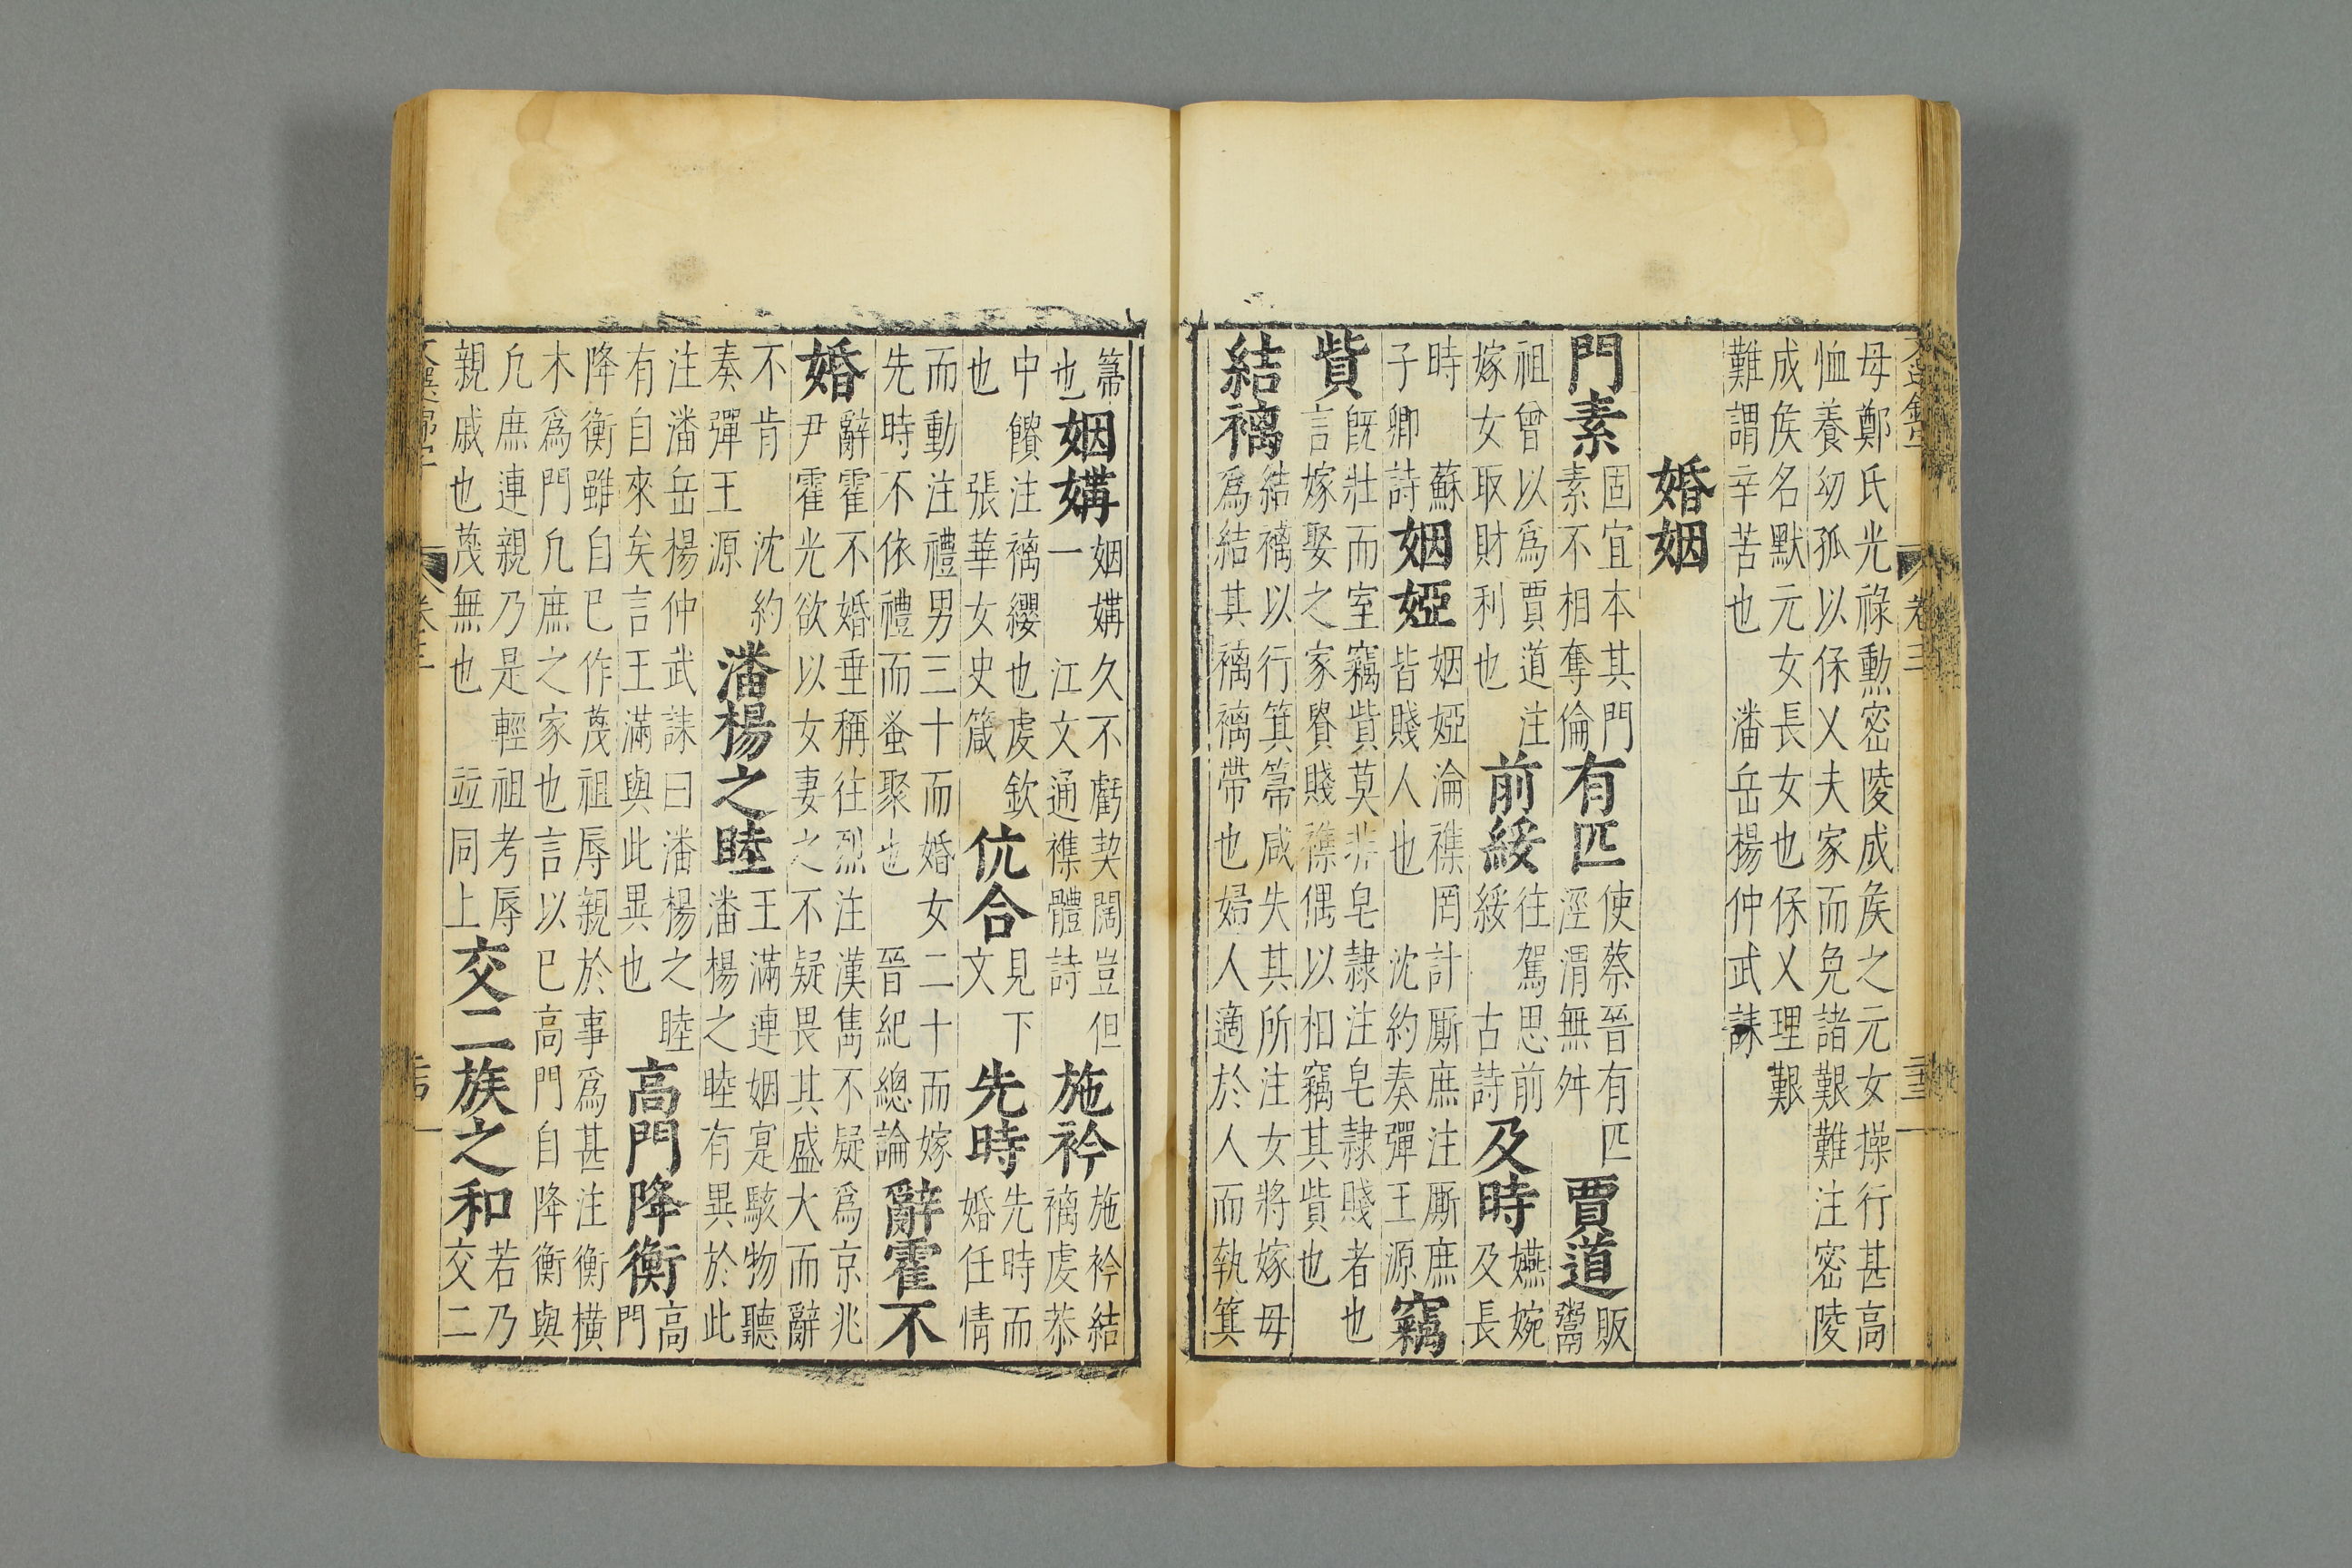 母鄭氏光祿勲密陵成矦之元女操行甚高
恤養幼孤以保乂夫家而免諸艱難注密陵
成矦名默元女長女也保乂理艱
難謂辛苦也 潘岳楊仲武誄
婚姻
門素
固宜本其門
素不相奪倫
有匹
使蔡晉有匹
涇渭無舛
賈道
販
鬻
祖曾以爲賈道注
嫁女取財利也
前綏
往駕思前
綏 古詩
及時
嬿婉
及長
時 蘇
子卿詩
姻婭
姻婭淪襍罔計厮庶注厮庶
皆賤人也 沈約奏彈王源
竊
貲
旣壯而室竊貲莫非皂隷注皂隷賤者也
言嫁娶之家貿賤襍偶以相竊其貲也
結褵
結褵以行箕箒咸失其所注女將嫁母
爲結其褵褵帶也婦人適於人而執箕
卷三
箒
也
姻媾
姻媾久不虧契闊豈但
一 江文通襍體詩
施衿
施衿結
褵虔恭
中饋注褵纓也虔欽
也 張華女史箴
伉合
見下
文
先時
先時而
婚任情
而動注禮男三十而婚女二十而嫁
先時不依禮而蚤聚也 晉紀總論
辭霍不
婚
辭霍不婚垂稱往烈注漢雋不疑爲京兆
尹霍光欲以女妻之不疑畏其盛大而辭
不肯 沈約
奏彈王源
潘楊之睦
王滿連姻寔駭物聽
潘楊之睦有異於此
注潘岳楊仲武誄曰潘楊之睦
有自來矣言王滿與此異也
高門降衡
高
門
降衡雖自巳作蔑祖辱親於事爲甚注衡橫
木爲門凢庶之家也言以巳高門自降衡與
凢庶連親乃是輕祖考辱
親戚也蔑無也 竝同上
交二族之和
若乃
交二